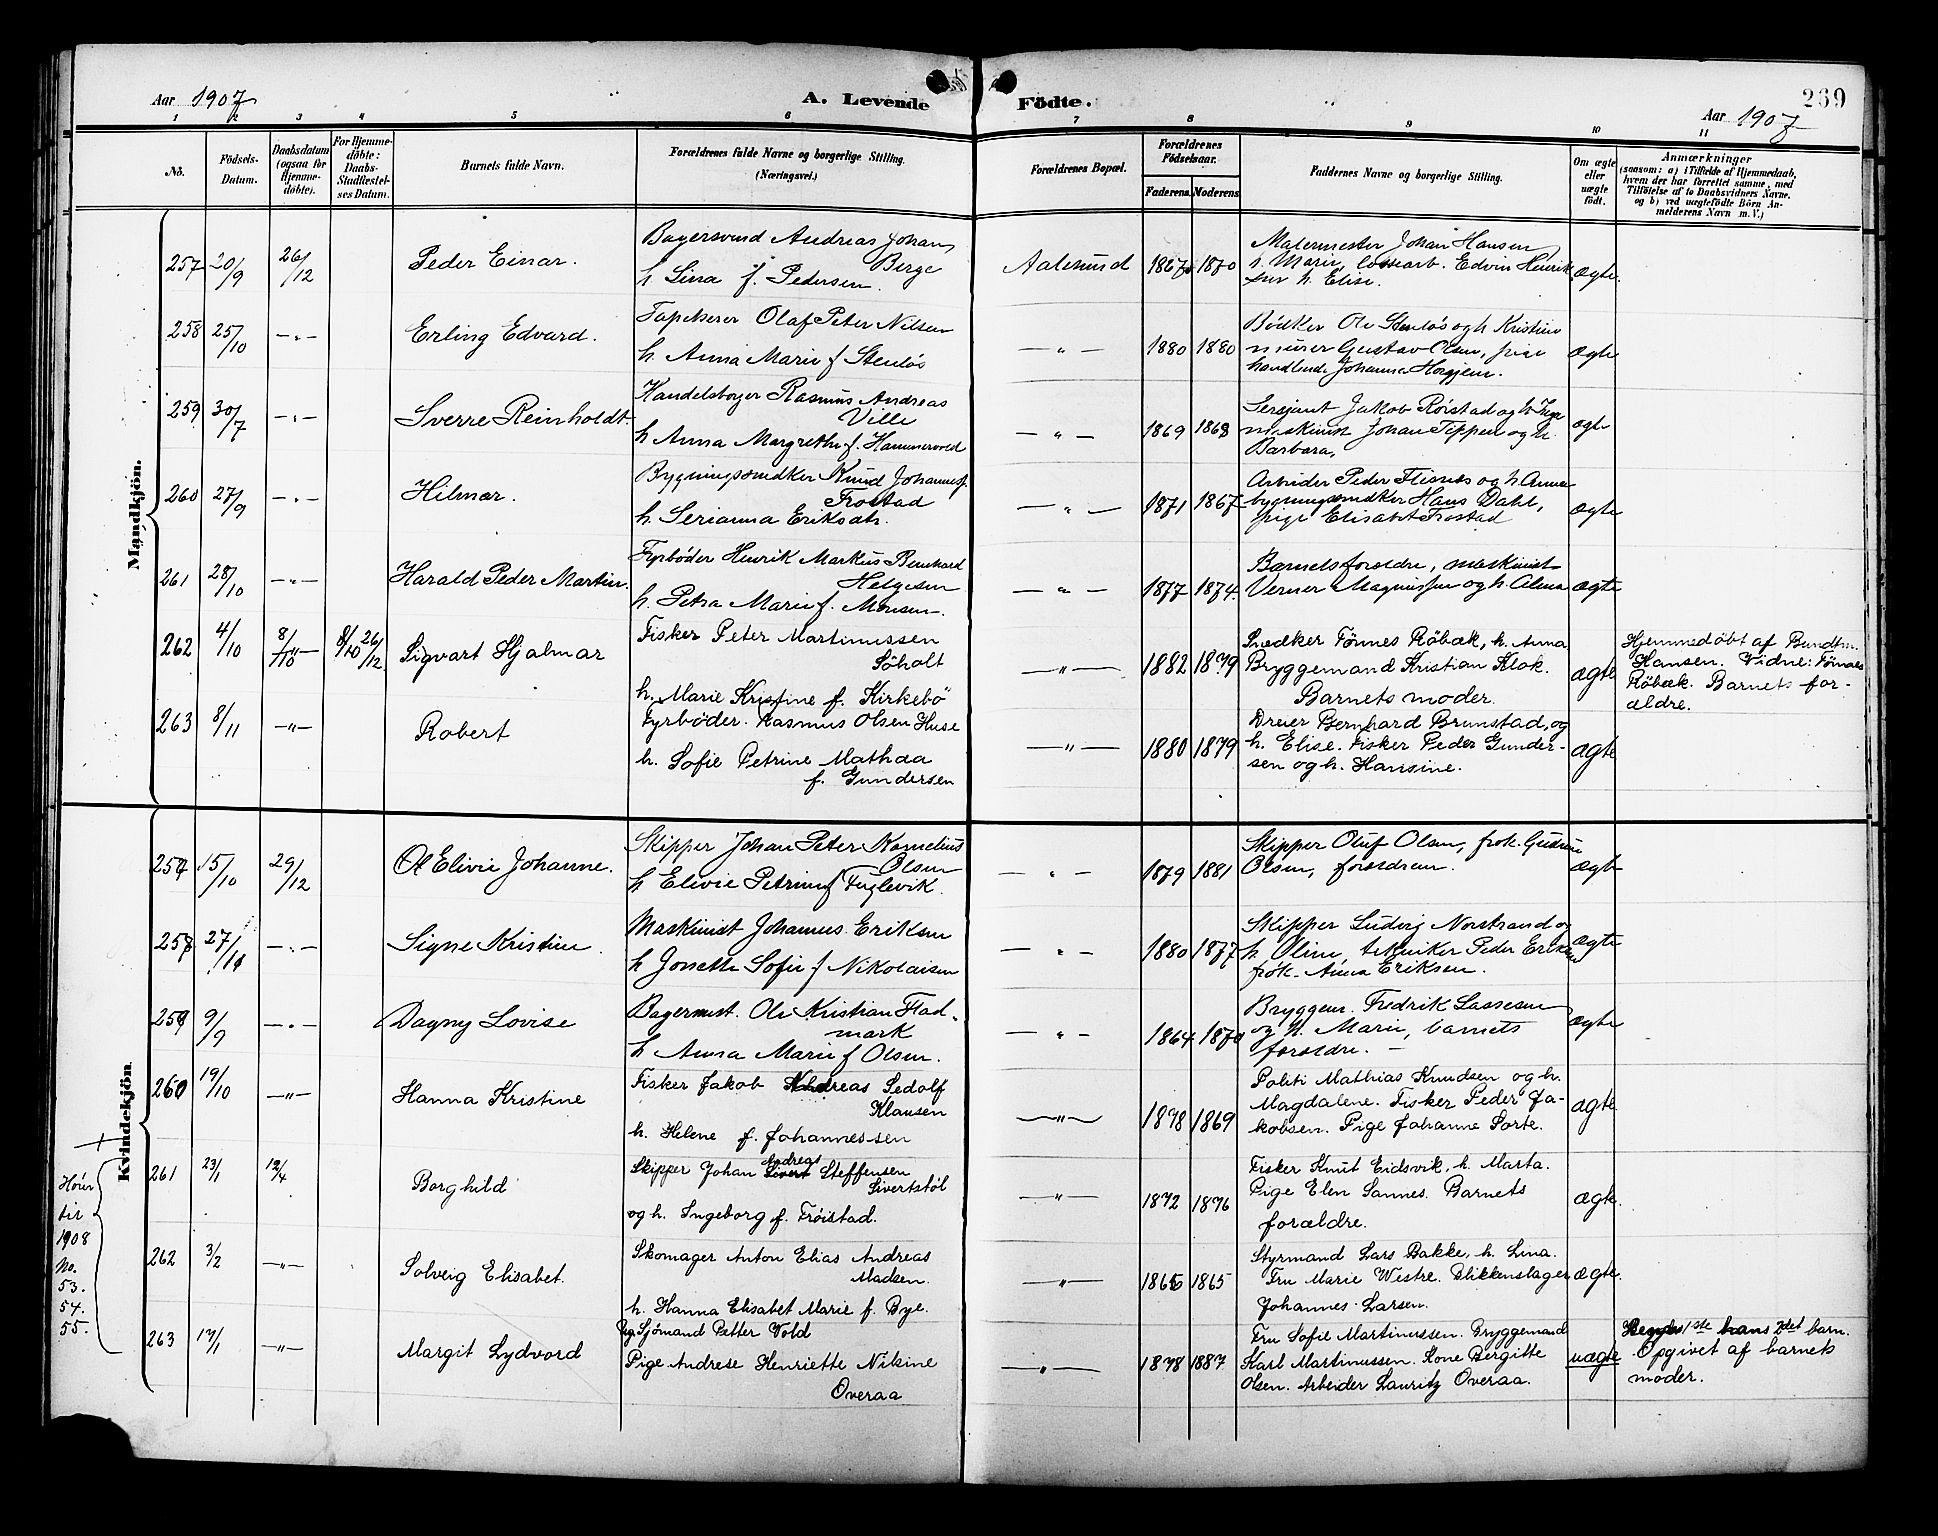 Aar 1907
A. Levende Födte.
269
Aar 1907
1 2 3 4 5 6 7 8 9 10 11
No.
Födsels-
Datum.
Daabsdatum
(ogsaa for
Hjemme-
döbte).
For Hjemme-
döbte:
Daabs-
Stadfæstel-
ses Datum.
Barnets fulde Navn.
Forældrenes fulde Navne og borgerlige Stilling.
(Næringsvei.)
Forældrenes Bopæl.
Forældrenes
Födselsaar.
Faderens. Moderens.
Faddernes Navne og borgerlige Stilling.
Om ægte
eller
uægte
født.
Anmærkninger
(saasom: a) i Tilfælde af Hjemmedaab,
hvem der har forrettet samme, med
Tilföielse af to Daabsvidners Navne.
og b) ved uægtefödte Börn An-
melderens Navn m. V.)
Mandkjön.
257 20/9 26/12 Peder Einar.
Bagersvend Andreas Johan
Berge
h Lina f. Pedersen.
Aalesund 1867 1870
Malermester Johan Hansen
h. Marie, lossearb. Edvin Henrik
sen h. Elise.
ægte.
258 25/10 -"- Erling Edvard.
Tapetserer Olaf Peter Nilsen
h. Anna Marie f Stenløs
-"- 1880 1880
Bødker Ole Stenløs og h Kristine
murer Gustav Olsen, pige
handlende Johanna
ægte
259 30/7 -"- Sverre Reinholdt.
Handelsborger Rasmus Andreas
Ville
h Anna Margrethe f. Hammervold
-"- 1869 1868
Sersjant Jakob Røistad og h
maskinist Johan Teppen og h.
Barbara,
ægte
260 27/9 -"- Hilmar.
Bygningssnedker Knud Johannes
Frostad
h. Serianna Eriksdtr.
-"- 1871 1867
Arbeider Peder Flisnes og h. Anna
bygningssnedker Hans Dahl,
pige Elisabet Frostad
ægte
261 28/10 -"- Harald Peder Martin.
Fyrbøder Henrik Markus Bernhard
Helgesen
h. Petra Marie f. Monsen.
-"- 1877 1874.
Barnets forældre, maskinist
Verner Magnussen og h. Alma
ægte
262 4/10 8/10 -"- 8/10 26/12 Sigvart Hjalmar
Fisker Peter Martinussen
Søholt
h. Marie Kristine f. Kirkebö
-"- 1882 1879
Snedker Tönnes Röbæk, h. Anna
Bryggemand Kristian Klok.
Barnets moder.
ægte
Hjemmedøbt af Bundtm.
Hansen. Vidne: Tönnes
Röbæk. Barnets for-
ældre.
263 8/11 -"- Robert
Fyrbøder. Rasmus Olsen Huse
h. Sofie Petrine Mathea
f. Gundersen
-"- 1880 1879
Dreier Bernhard Brunstad, og
h. Elise. Fisker Peder Gunder-
sen og h. Hansine.
ægte
Kvindekjön
257 15/10 29/12 Elivie Johanne.
Skipper Johan Peter Kornelius
Olsen
h Elivie Petrine f Fuglevik.
-"- 1879 1881
Skipper Oluf Olsen, frøk. Gudrun
Olsen, forældrene.
ægte
258 27/10 -"- Signe Kristine.
Maskinist Johannes Eriksen
h Jonette Sofie f Nikolaisen
-"- 1880 1877
Skipper Ludvig Norstrand og
h Oline, tekniker Peder Eriksen
frøk. Anna Eriksen.
ægte
259 9/9 -"- Dagny Lovise
Bagermest. Ole Kristian Flad-
mark
h Anna Marie f Olsen.
-"- 1864 1870
Bryggem. Fredrik Lassesen
og h. Marie, barnets
forældre. -
ægte
260 19/10 -"- Hanna Kristine
Fisker Jakob Andreas Sedolf
Klausen
h. Helene f. Johannessen
-"- 1878 1869
Politi Mathias Knudsen og h.
Magdalene. Fisker Peder Ja-
kobsen. Pige Johanne Sorte.
ægte
Hóur
tir
1908
No.
53.
54.
55.
261 23/1 12/4 Borghild
Skipper Johan Andreas Sivert Steffensen
Sivertstøl
og h. Ingeborg f. Frøistad.
-"- 1872 1876
Fisker Knut Eidsvik, h. Marta.
Pige Elen Sannes. Barnets
forældre.
ægte.
262 3/2 -"- Solveig Elisabet.
Skomager Anton Elias Andreas
Madsen.
h. Hanna Elisabet Marie f. Bye.
-"- 1865 1865
Styrmand Lars Bakke, h. Lina.
Fru Marie Westre. Blikkenslager
Johannes Larsen.
ægte
263 17/1 -"- Margit Lydvord
Sjömand Petter Vold
Pige Andrese Henriette Nikine
Overaa
-"- 1878 1887
Fru Sofie Martinussen. Bryggemand
Karl Martinussen. Kone Bergitte
Olsen. Arbeider Lauritz Overaa.
uægte
1ste hans 2det barn.
Opgivet af barnets
moder.